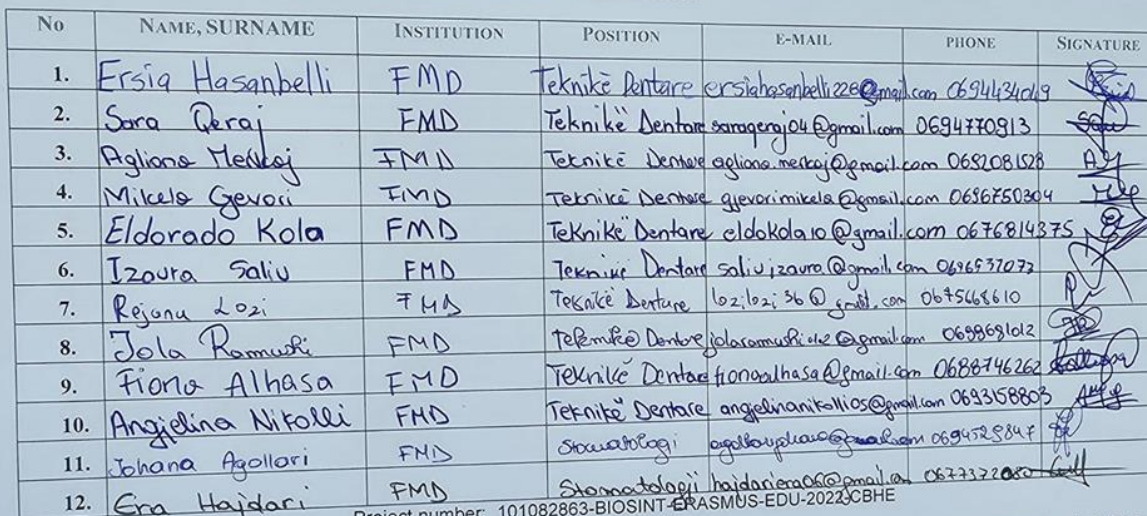 No NAME, SURNAME INSTITUTION POSITION E-MAIL PHONE SIGNATURE
1. Ersia Hasanbelli FMD Teknikë Dentare ersiahasanbelli228@gmail.com 0694434049
2. Sara Qeraj FMD Teknikë Dentare saraqeraj04@gmail.com 0694770913
3. Agliana Merkaj FMD Teknikë Dentare agliana.merkaj@gmail.com 0692081528
4. Mikela Gjevori FMD Teknikë Dentare gjevorimikela@gmail.com 0696750304
5. Eldorado Kola FMD Teknikë Dentare eldokola10@gmail.com 0676814375
6. Izaura Saliu FMD Teknikë Dentare saliuizaura@gmail.com 0696937073
7. Rejana Lozi FMD Teknikë Dentare lozilozi36@gmail.com 0675668610
8. Jola Ramushi FMD Teknikë Dentare 0698681012
9. Fiona Alhasa FMD Teknikë Dentare fionaalhasa@gmail.com 0688746262
10. Angjelina Nikolli FMD Teknikë Dentare angjelinanikolli05@gmail.com 0693158803
11. Johana Agollari FMD Stomatologi 0694529847
12. Era Hajdari FMD Stomatologji hajdariera06@gmail.com
Project number: 101082863-BIOSINT-ERASMUS-EDU-2022-CBHE